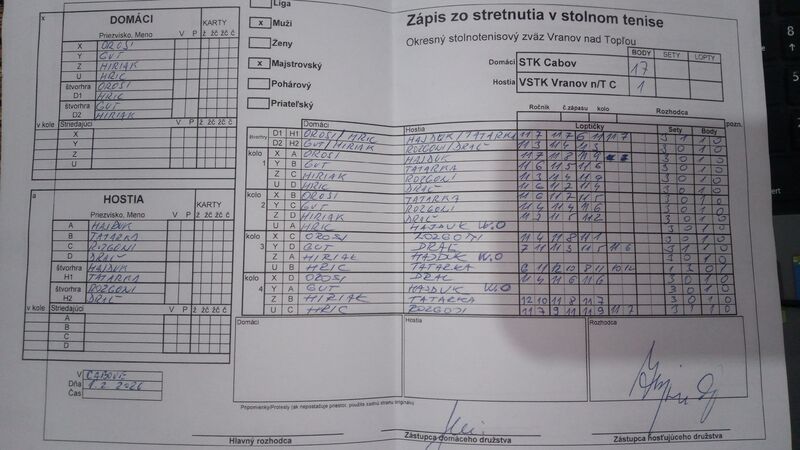 Liga
x Muži
Ženy
x Majstrovský
Pohárový
Priateľský
Zápis zo stretnutia v stolnom tenise
Okresný stolnotenisový zväz Vranov nad Topľou
BODY SETY LOPTY
Domáci STK Cabov 17
Hostia VSTK Vranov n/T C 1
Ročník č.zápasu kolo Rozhodca
x
DOMÁCI
KARTY
Priezvisko, Meno V P ž žč žč č
X OROSI
Y GUT
Z HIRIAK
U HRIC
štvorhra OROSI
D1 HRIC
štvorhra GUT
D2 HIRIAK
v kole Striedajúci
X
Y
Z
U
a
HOSTIA
KARTY
Priezvisko, Meno V P ž žč žč č
A HAJDUK
B TATARKA
C ROZGONI
D DRAČ
štvorhra HAJDUK
H1 TATARKA
štvorhra ROZGONI
H2 DRAČ
v kole Striedajúci V P ž žč žč č
A
B
C
D
V CABOVE
Dňa 1.2 2026
Čas
Domáci Hostia Loptičky Sety Body pozn.
štvorhry D1 H1 OROSI/HRIC HAJDUK/TATARKA 11 7 11 7 6 11 11 7 3 1 1 0
D2 H2 GUT/HIRIAK ROZGONI/DRAČ 11 3 11 4 11 3 3 0 1 0
kolo 1 X A OROSI HAJDUK 11 7 11 8 11 9 3 0 1 0
Y B GUT TATARKA 11 6 11 5 11 6 3 0 1 0
Z C HIRIAK ROZGONI 3 0 1 0
U D HRIC DRAČ 11 6 11 2 11 4 3 0 1 0
kolo 2 X B OROSI TATARKA 3 0 1 0
Y C GUT ROZGONI 3 0 1 0
Z D HIRIAK DRAČ 11 2 11 5 11 2 3 0 1 0
U A HRIC HAJDUK W.O 3 0 1 0
kolo 3 X C OROSI ROZGONI 11 4 11 8 11 1 3 0 1 0
Y D GUT DRAČ 7 11 11 3 11 5 11 6 3 1 1 0
Z A HIRIAK HAJDUK W.O 3 0 1 0
U B HRIC TATARKA 12 10 8 11 10 12 1 3 0 1
kolo 4 X D OROSI DRAČ 11 4 11 6 11 6 3 0 1 0
Y A GUT HAJDUK W.O 3 0 1 0
Z B HIRIAK TATARKA 12 10 11 8 11 7 3 0 1 0
U C HRIC ROZGONI 11 7 9 11 11 9 11 7 3 1 1 0
Domáci Hostia Rozhodca
Pripomienky/Protesty (ak nepostačuje priestor, použite zadnú stranu originálu
Hlavný rozhodca
Zástupca domáceho družstva
Zástupca hosťujúceho družstva